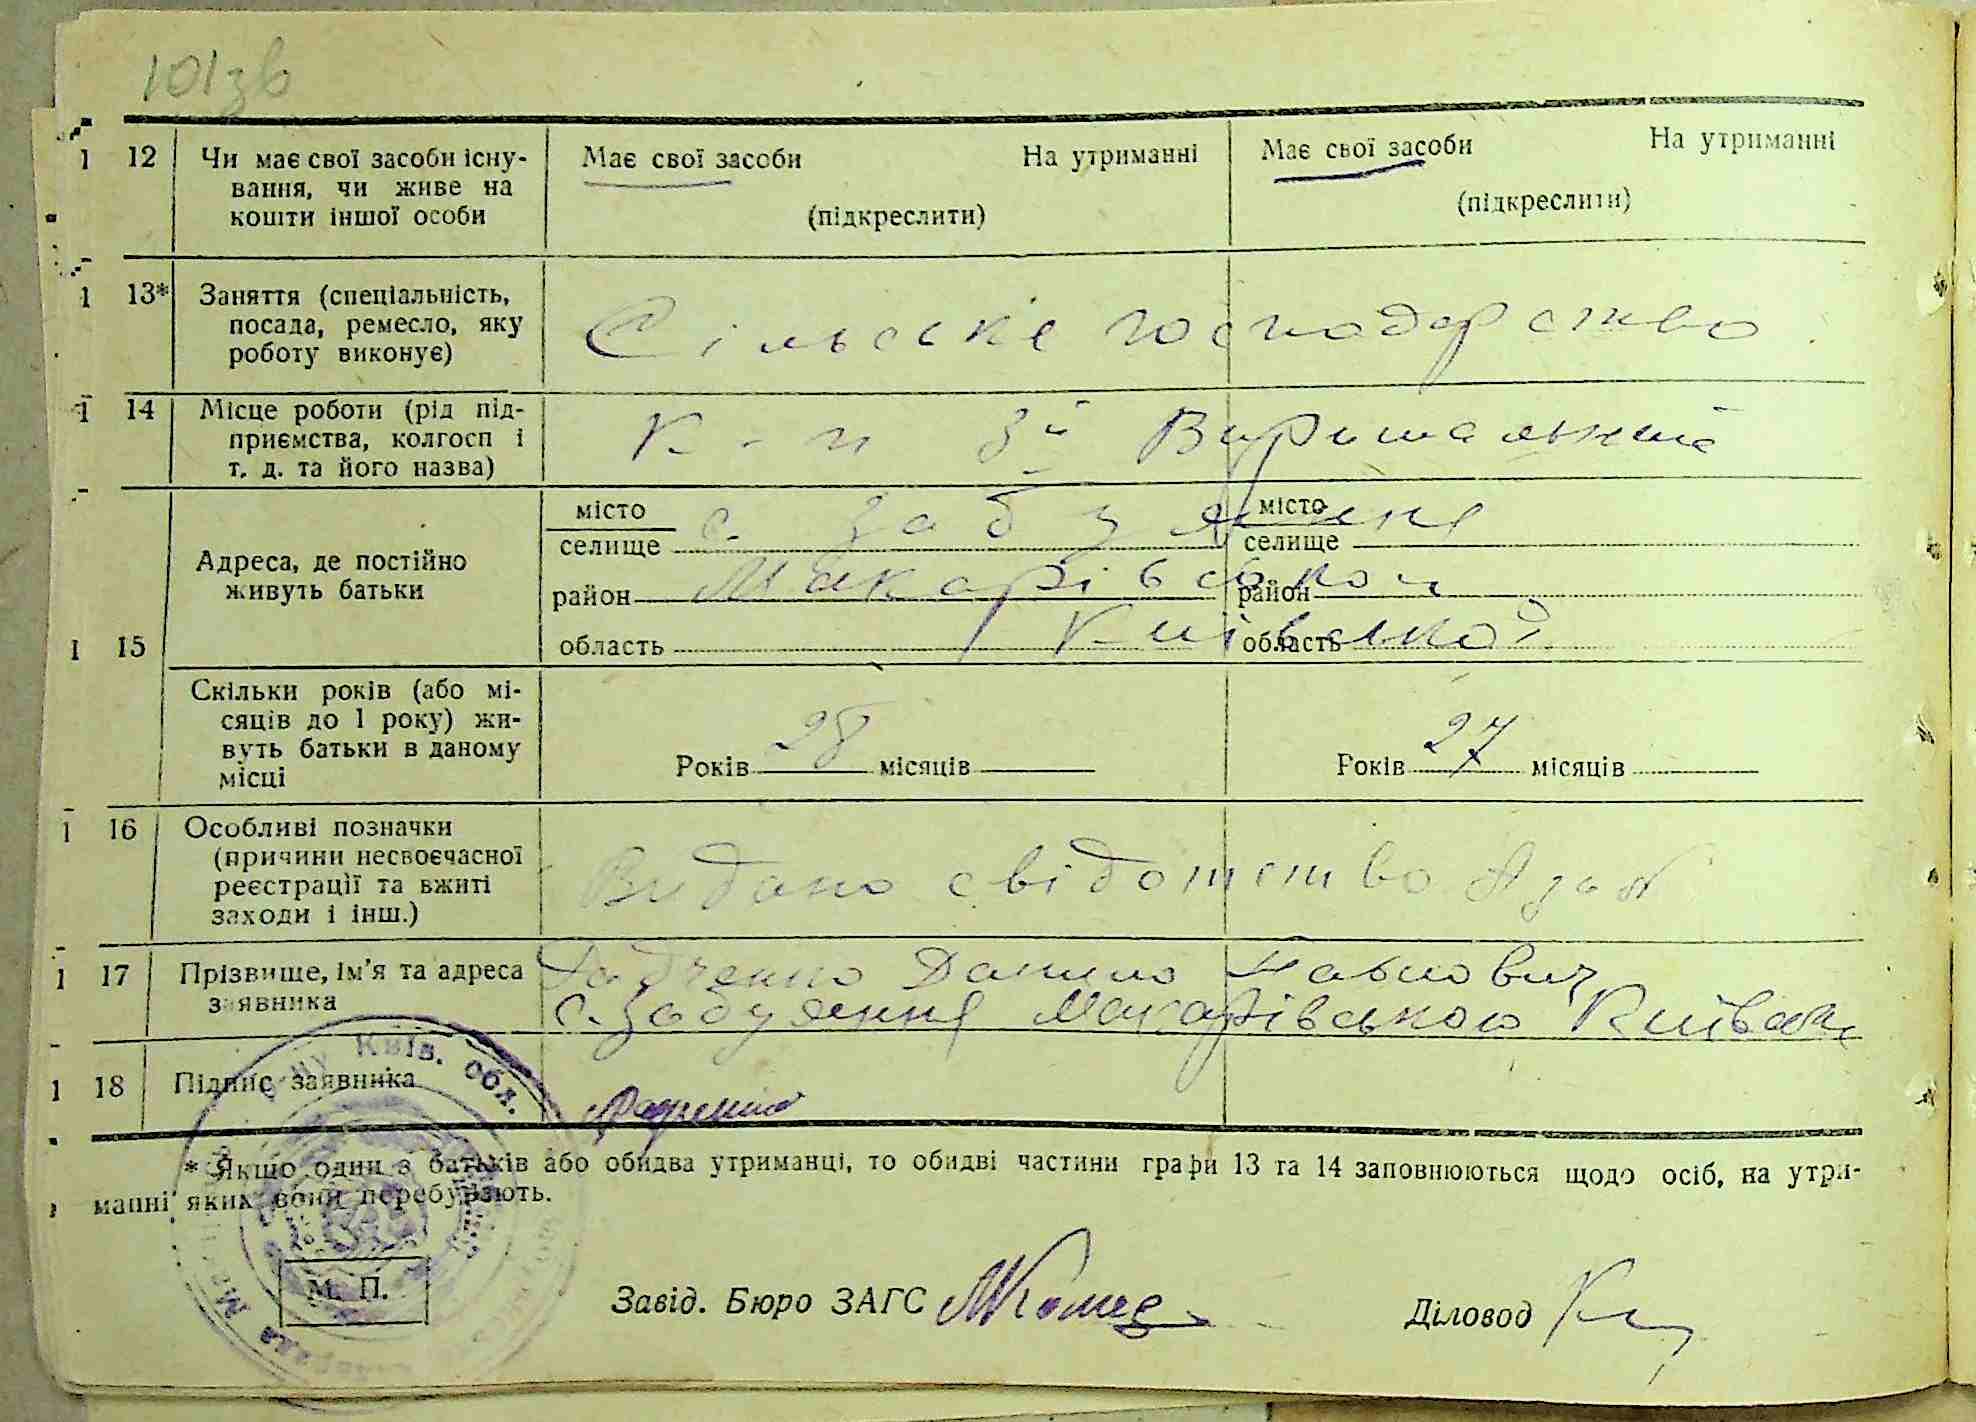 101зв
1 12 Чи має свої засоби існу-
вання, чи живе на
кошти іншої особи
Має свої засоби На утриманні
(підкреслити)
Має свої засоби На утриманні
(підкреслити)
1 13* Заняття (спеціальність,
посада, ремесло, яку
роботу виконує)
Сільське господарство
1 14 Місце роботи (рід під-
приємства, колгосп і
т. д. та його назва)
К-п 3й Вирішальний
1 15
Адреса, де постійно
живуть батьки
місто
селище
с. Забуяння
місто
селище
район Макарівської район
область Київської область
Скільки років (або мі-
сяців до 1 року) жи-
вуть батьки в даному
місці
Років 28 місяців
Років 27 місяців
1 16 Особливі позначки
(причини несвоєчасної
реєстрації та вжиті
заходи і інш.)
Видано свідотство
1 17 Прізвище, ім'я та адреса
заявника
Радченко Данило Павлович
с. Забуяння Макарівського Київської
1 18 Підпис заявника
Радченко
* Якщо один з батьків або обидва утриманці, то обидві частини графи 13 та 14 заповнюються щодо осіб, на утри-
манні яких вони перебувають.
Київ. обл.
М. П.
Завід. Бюро ЗАГС
Діловод